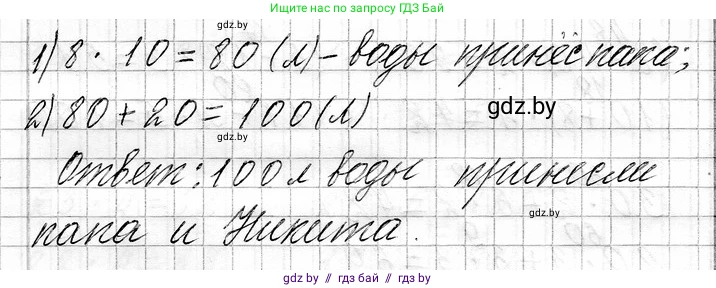 Ищите нас по запросу ГДЗ Бай
gdz.by
1) 8 · 10 = 80 (л) - воды принёс папа;
2) 80 + 20 = 100 (л)
gdz.by
gdz.by
Ответ: 100 л воды принесли
gdz.by
папа и Никита.
gdz.by // гдз бай // гдз.бел